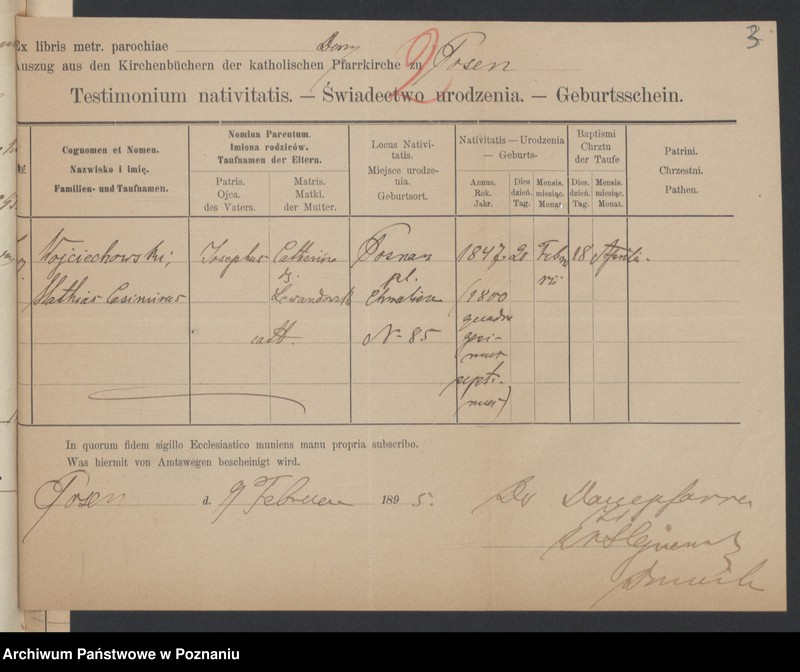 3
Ex libris metr. parochiae
2
Auszug aus den Kirchenbüchern der katholischen Pfarrkirche zu Posen
Testimonium nativitatis. — Świadectwo urodzenia. — Geburtsschein.
Cognomen et Nomen.
Nazwisko i imię.
Familien- und Taufnamen.
Nomina Parentum.
Imiona rodziców.
Taufnamen der Eltern.
Patris.
Ojca.
des Vaters.
Matris.
Matki.
der Mutter.
Locus Nativi-
tatis.
Miejsce urodze-
nia.
Geburtsort.
Nativitatis — Urodzenia
— Geburts-
Annus.
Rok.
Jahr.
Dies
dzień.
Tag.
Mensis.
miesiąc.
Monat.
Baptismi
Chrztu
der Taufe
Dies.
dzień.
Tag.
Mensis.
miesiąc.
Monat.
Patrini.
Chrzestni.
Pathen.
Wojciechowski;
Mathias Casimirus
Josephus
Catherina
Lewandowsk
cath.
Posnan
pl.
N- 85
1847.
(1800
quadra
gesi-
mus
septi-
mus)
Febru
rii
18
Aprili.
In quorum fidem sigillo Ecclesiastico muniens manu propria subscribo.
Was hiermit von Amtswegen bescheinigt wird.
Posen d. 9 Februar 1895.
Der
Archiwum Państwowe w Poznaniu